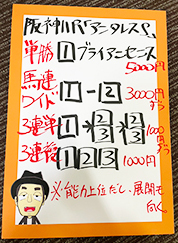 阪神11R「アンタレスS」
単勝 1 ブライアンセンス
5000円
馬連
ワイド 1-2 3000円
ずつ
3連単 1→2/3→2/3 1000円
ずつ
3連複 1 2 3 1000円
※能力上位だし、展開も
向く。